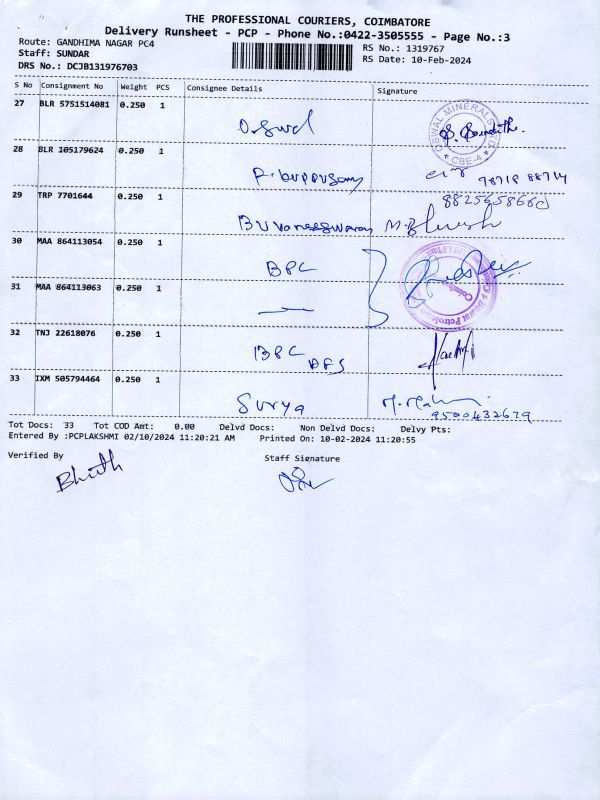 THE PROFESSIONAL COURIERS, COIMBATORE
Delivery Runsheet - PCP - Phone No.:0422-3505555 - Page No.:3
Route: GANDHIMA NAGAR PC4
RS No.: 1319767
Staff: SUNDAR
RS Date: 10-Feb-2024
DRS No.: DCJB131976703
S No Consignment No Weight PCS Consignee Details Signature
27 BLR 5751514081 0.250 1
OSWAL MINERALS
CBE-4
28 BLR 105179624 0.250 1
29 TRP 7701644 0.250 1
Buvaneeswaran
30 MAA 864113054 0.250 1 BPC
31 MAA 864113063 0.250 1
Bharat Petroleum
32 TNJ 22618076 0.250 1 BPC
33 IXM 505794464 0.250 1 Surya
9500432679
Tot Docs: 33 Tot COD Amt: 0.00 Delvd Docs: Non Delvd Docs: Delvy Pts:
Entered By :PCPLAKSHMI 02/10/2024 11:20:21 AM Printed On: 10-02-2024 11:20:55
Verified By Staff Signature